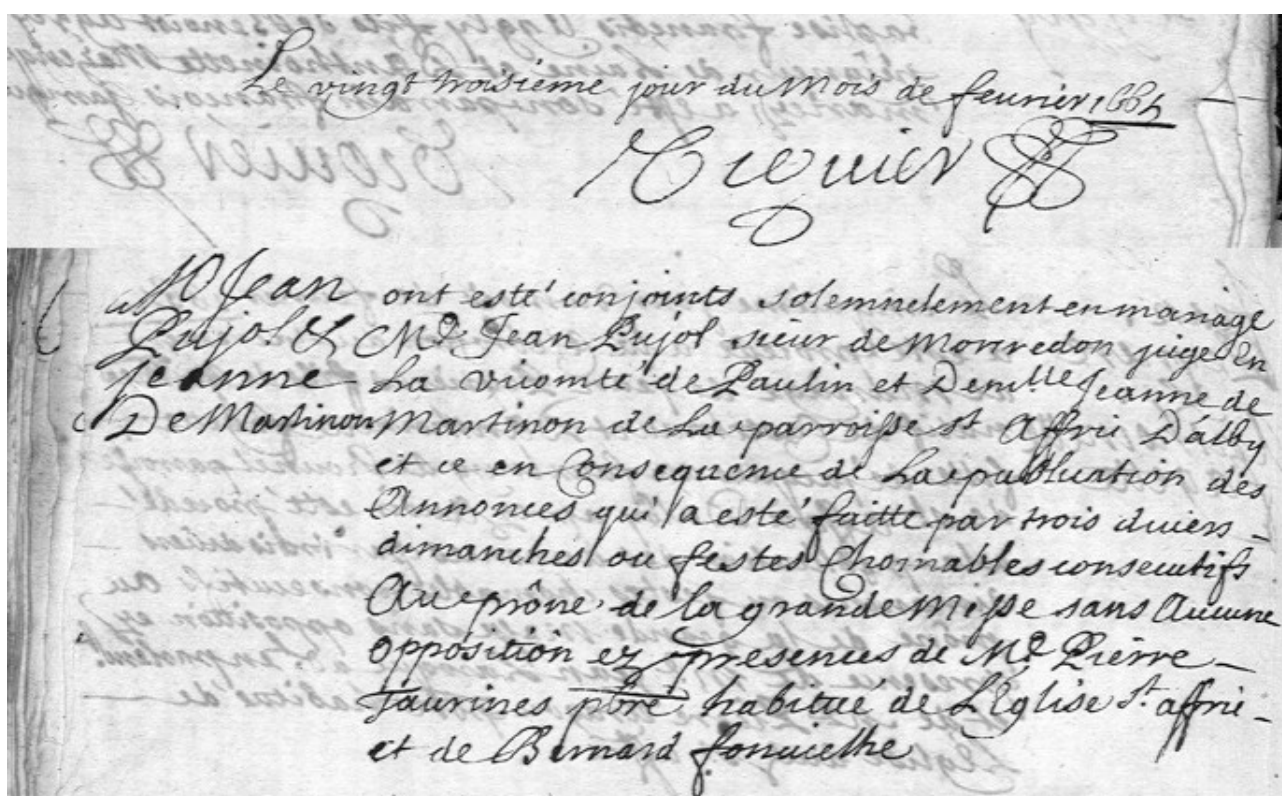 Le vingt troisieme jour du Mois de feurier 1664
Mᵉ Jean
Pujol &
Jeanne
De Martinon
ont esté conjoints solemnelement en mariage
Mᵉ Jean Pujol sieur de Monredon juge En
La vicomté de Paulin et Demˡˡᵉ Jeanne de
Martinon de La parroisse sᵗ Affric Dalby
et ce en Consequence de La publication des
Annonces qui a esté faitte par trois diuers
dimanches ou festes Chomables consecutifs
Au prône de la grande Messe sans Aucune
opposition ez presences de Mᵉ Pierre
Taurines pbre habitué de L'Eglise Sᵗ affric
et de Bernard fonuielhe